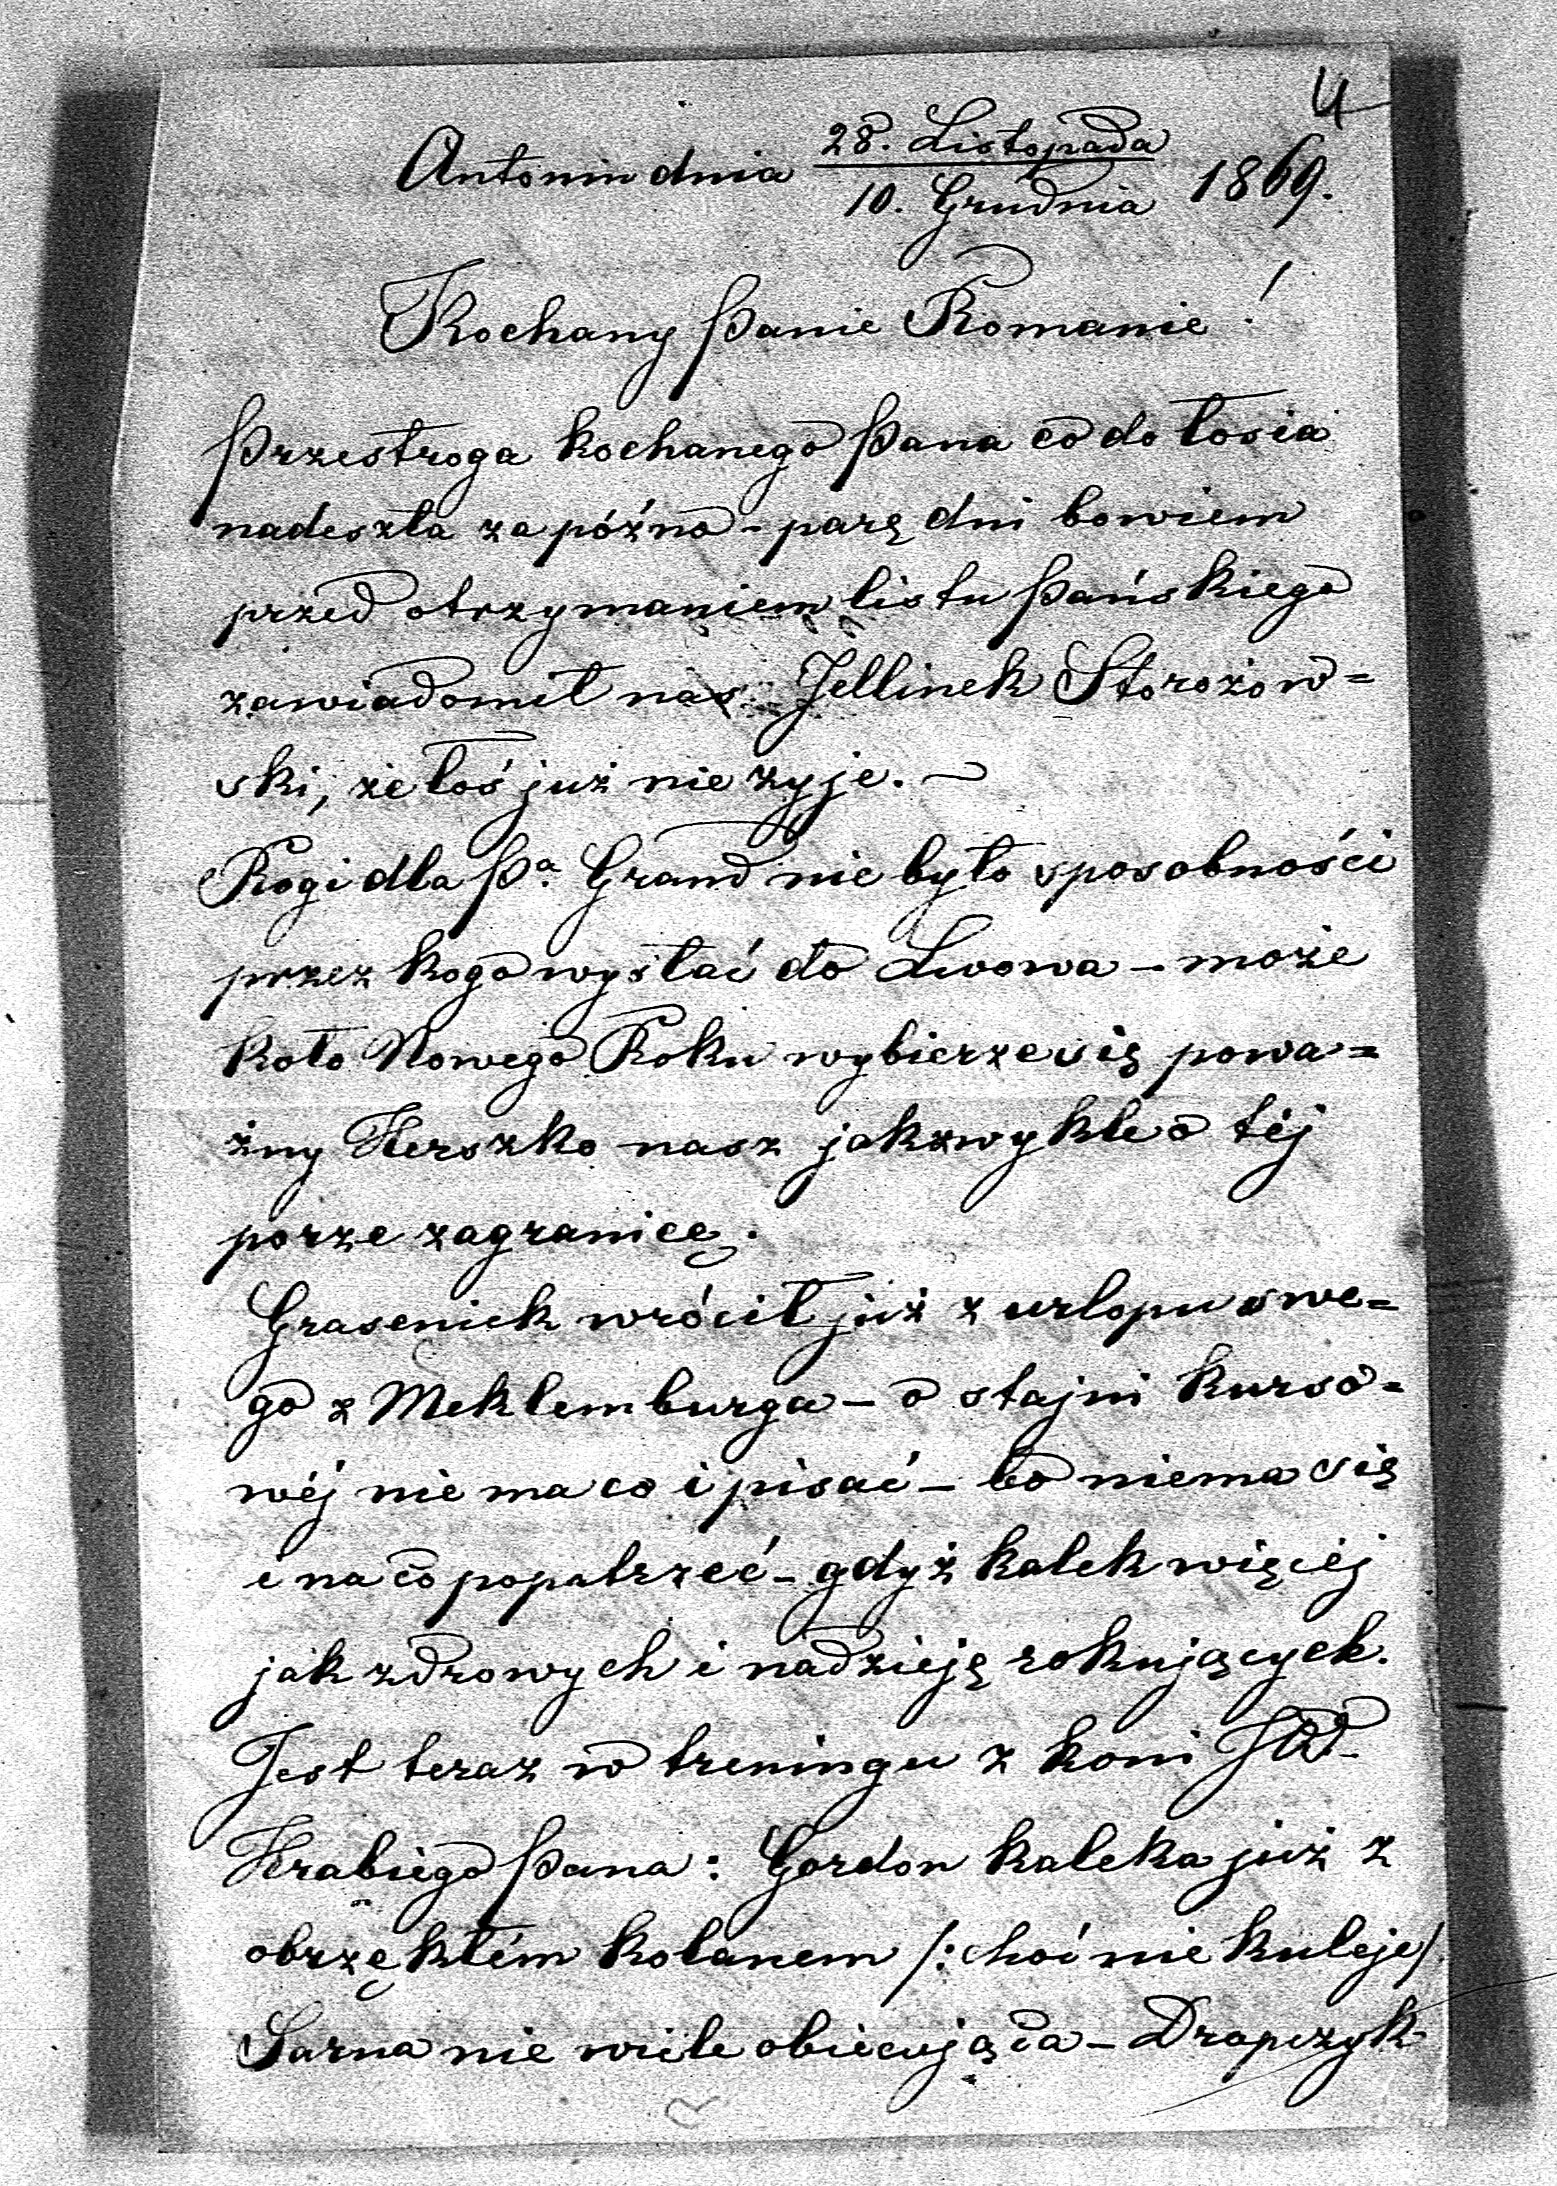 4
Antonin dnia 28. Listopada / 10. Grudnia 1869.
Kochany Panie Romanie!
Przestroga kochanego Pana co do łosia
nadeszła za późno - parę dni bowiem
przed otrzymaniem listu Pańskiego
zawiadomił nas Jellinek Storożow=
ski, że łoś już nie żyje. ~
Rogi dla Pa. Grand nie było sposobności
przez kogo wysłać do Lwowa - może
koło Nowego Roku wybierze się powa=
żny Herszko nasz jak zwykle o téj
porze zagranicę.
Grasenick wrócił już z urlopu swe=
go z Meklemburga - o stajni kurso=
wéj nie ma co i pisać - bo niema się
i na co popatrzeć - gdyż kalek więcéj
jak zdrowych i nadzieję rokujących.
Jest teraz w treningu z koni JW.
Hrabiego Pana: Gordon kaleka już z
obrzękłém kolanem /: choć nie kuleje/.
Sarna nie wiele obiecująca - Drapczyk